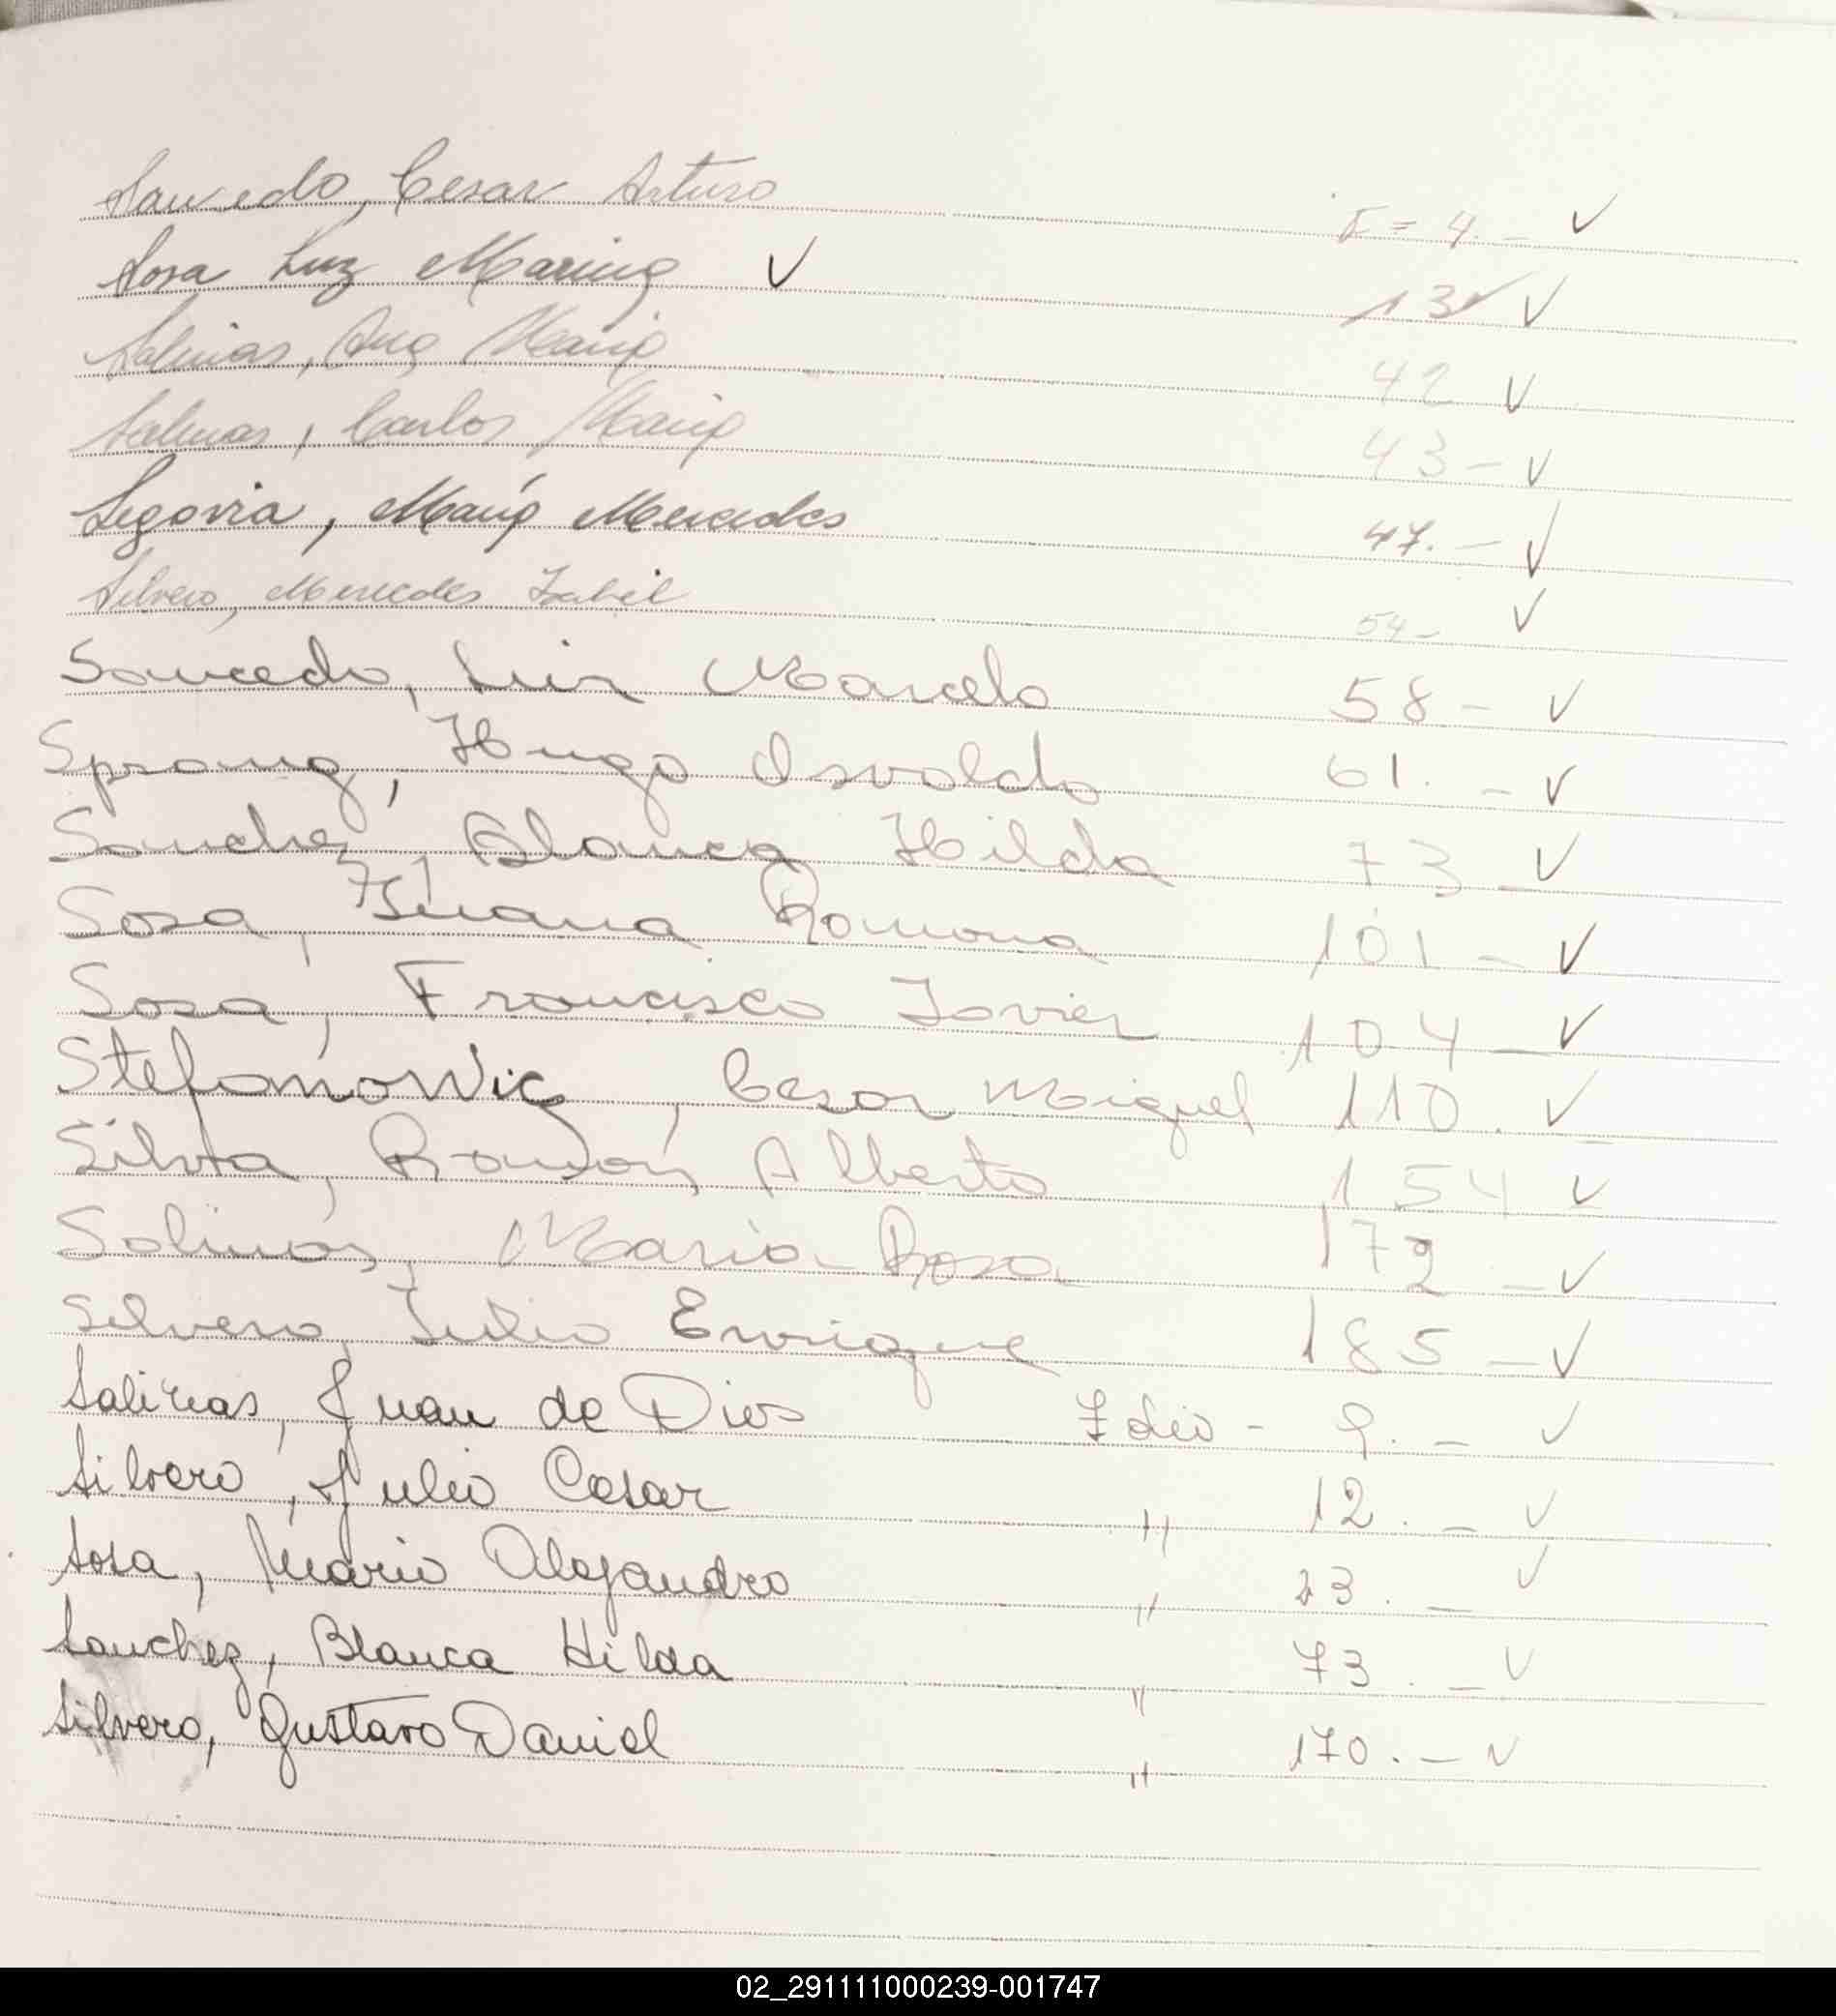 Saucedo, Cesar Arturo F = 4. - ✓
Sosa Luz Marina ✓ 13 ✓
Salinas, Ana María 42 ✓
Salinas, Carlos María 43 - ✓
Segovia, María Mercedes 47. - ✓
Silvero, Mercedes Isabel 54 - ✓
Saucedo, Luis Marcelo 58 - ✓
Sprang, Hugo Osvaldo 61. - ✓
Sanchez, Blanca Hilda 73 - ✓
Sosa, Juana Ramona 101 - ✓
Sosa, Francisco Javier 104 - ✓
Stefanowic, Cesar Miguel 110. - ✓
Silva, Ramón Alberto 154 ✓
Salinas, Maria Rosa 172 - ✓
Silvero, Julio Enrique 185 - ✓
Salinas, Juan de Dios Folio - 9. - ✓
Silvero, Julio Cesar " 12. - ✓
Sosa, Mario Alejandro " 23. - ✓
Sanchez, Blanca Hilda " 73. - ✓
Silvero, Gustavo Daniel " 170. - ✓
02_291111000239-001747